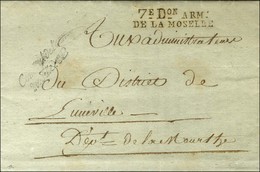 7E DON ARM.
DE LA MOSELLE
Aux administrateurs
du District de
Lunéville
Dépt. de la Meurthe